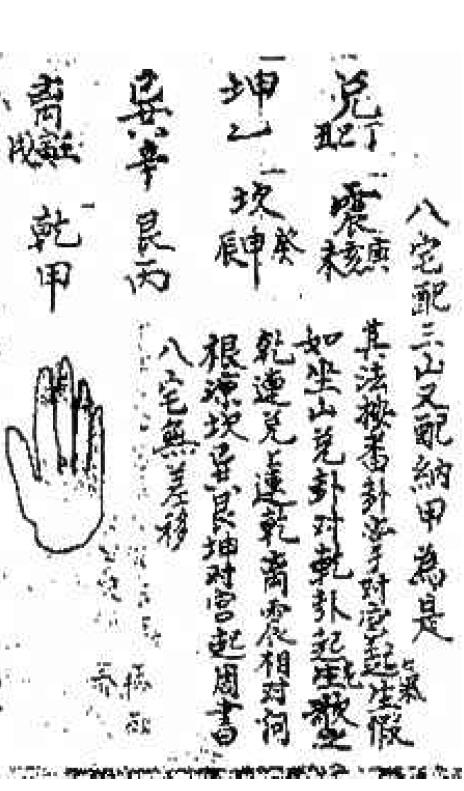 八宅配三山又配納甲為是
兌丁巳丑 震庚亥未
坤乙 坎癸申辰
巽辛 艮丙
离壬寅戌 乾甲
其法挨番卦手对宮起生氣假
如坐山兌卦对乾卦起生氣歌
乾連兌連乾离震相对何
根源坎巽艮坤对宮起周書
八宅無差移